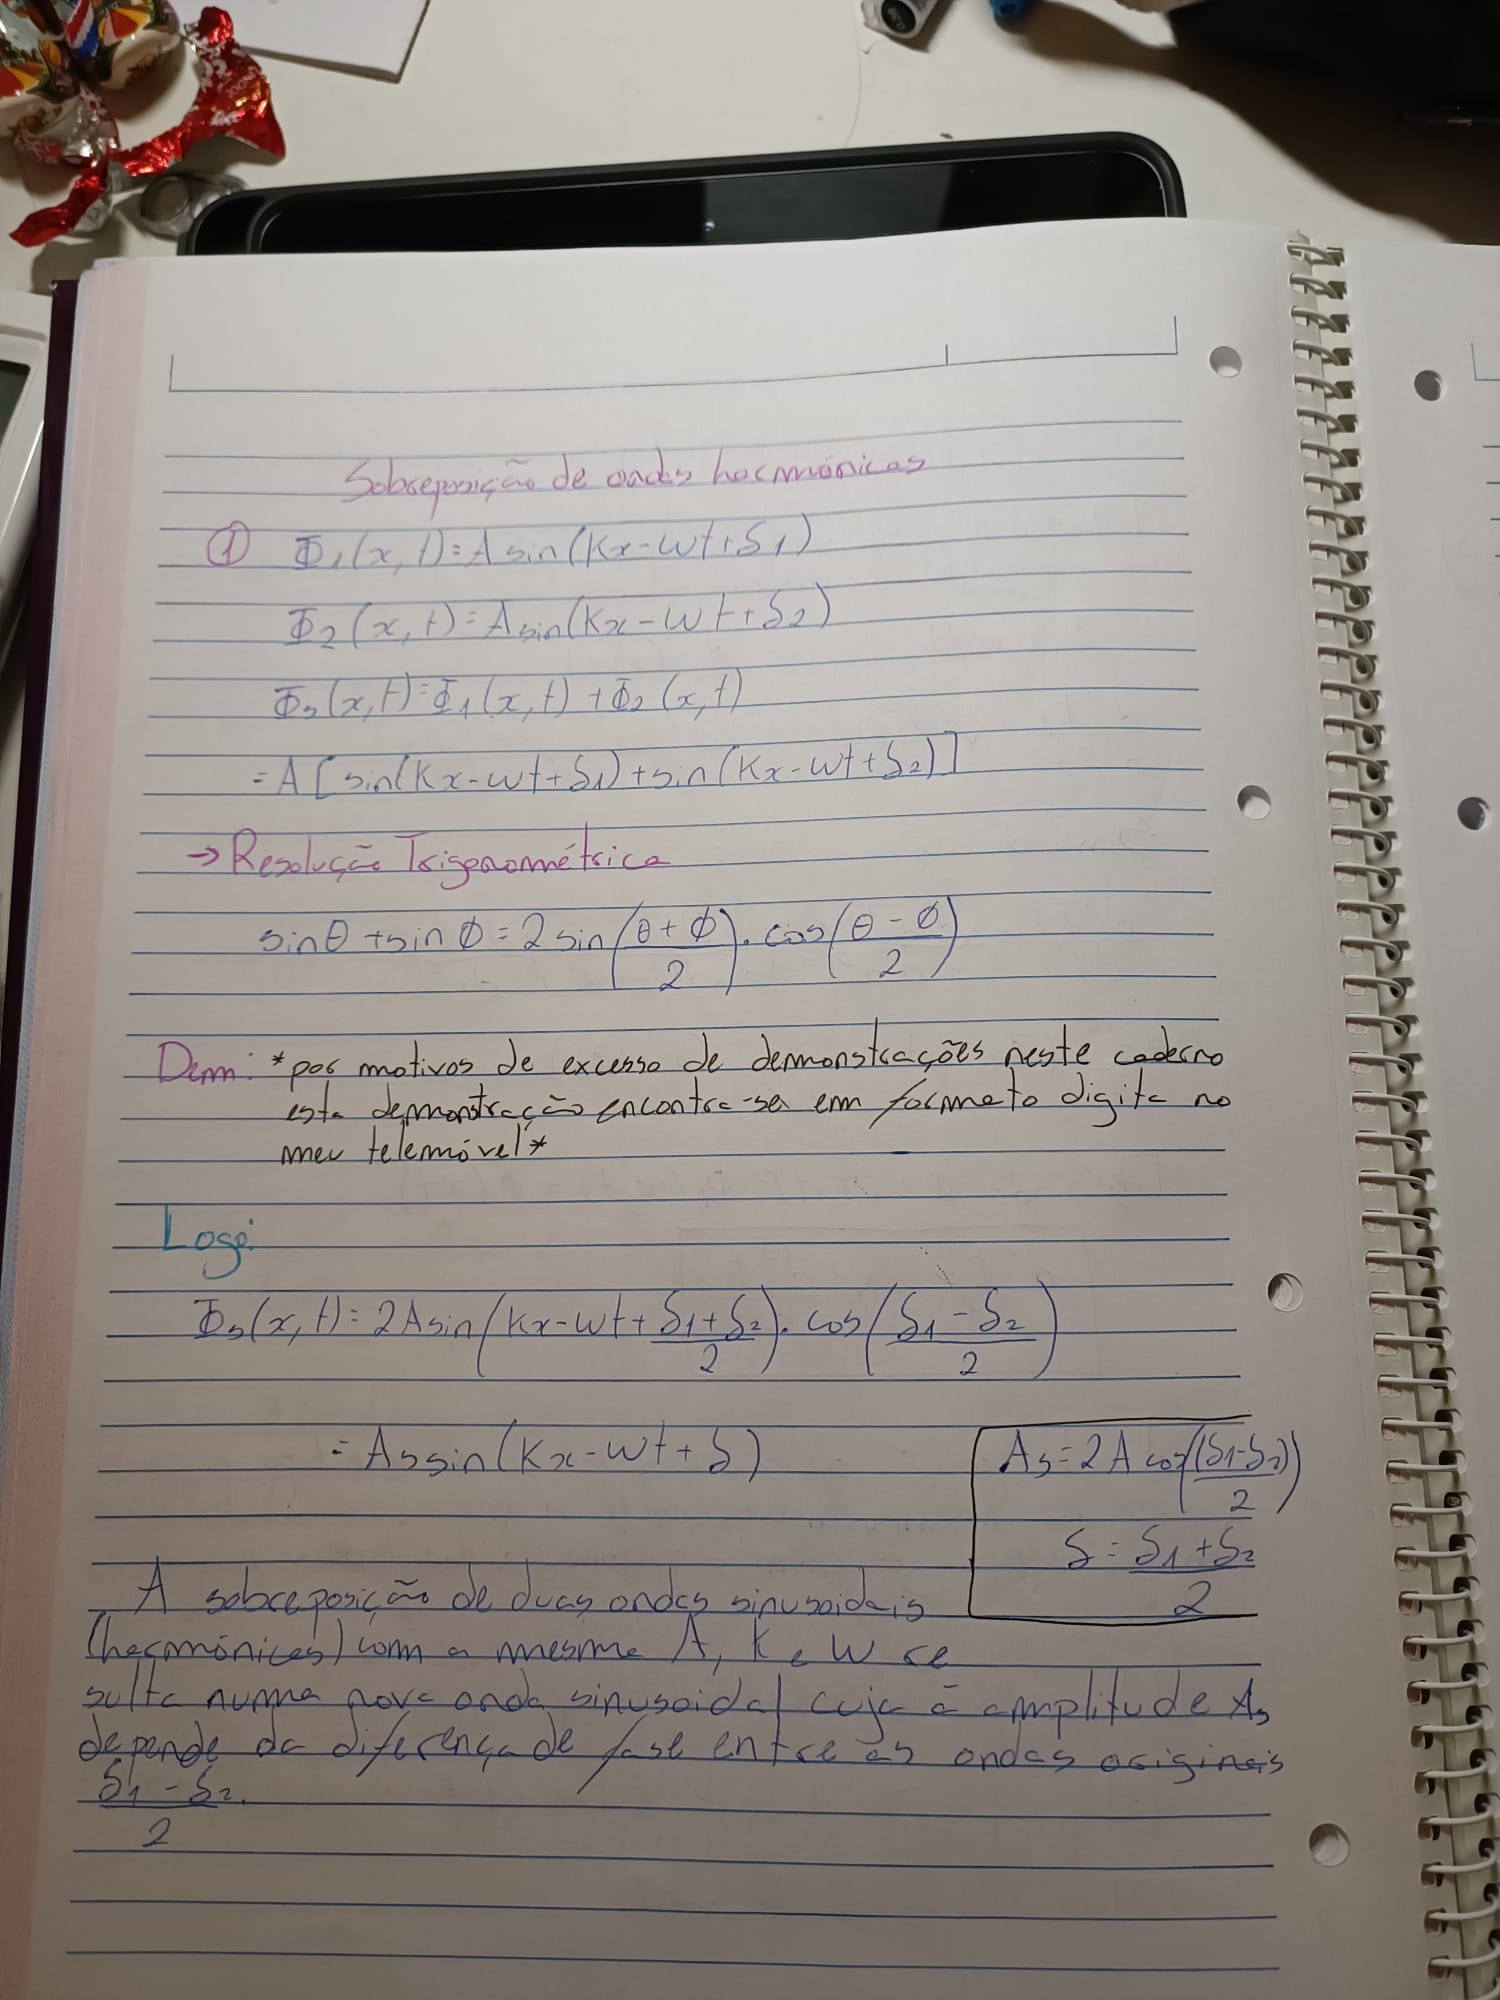 Sobreposição de ondas harmónicas
① Φ₁(x,t)=A sin(Kx-wt+δ1)
Φ₂(x,t)=A sin(Kx-wt+δ2)
Φs(x,t)=Φ₁(x,t)+Φ₂(x,t)
=A[sin(Kx-wt+δ1)+sin(Kx-wt+δ2)]
→Resolução Trigonométrica
sinθ+sinϕ=2sin((θ+ϕ)/2).cos((θ-ϕ)/2)
Dem: *por motivos de excesso de demonstrações neste caderno
esta demonstração encontra-se em formato digita no
meu telemóvel*
Logo:
Φs(x,t)=2Asin(Kx-wt+(δ1+δ2)/2).cos((δ1-δ2)/2)
=As sin(Kx-wt+δ)
As=2A cos((δ1-δ2)/2)
δ=(δ1+δ2)/2
A sobreposição de duas ondas sinusoidais
(harmónicas) com a mesma A, K e W re
sulta numa nova onda sinusoidal cuja a amplitude As
depende da diferença de fase entre as ondas originais
(δ1-δ2)/2.